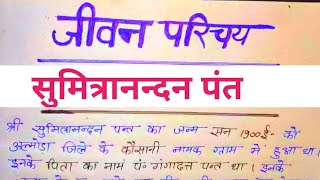 जीवन परिचय
सुमित्रानन्दन पंत
श्री सुमित्रानन्दन पन्त का जन्म सन 1900ई॰ को
अल्मोड़ा जिले के कौसानी नामक ग्राम मे हुआ था।
इनके पिता का नाम पं॰ गंगादत्त पन्त था। इनके